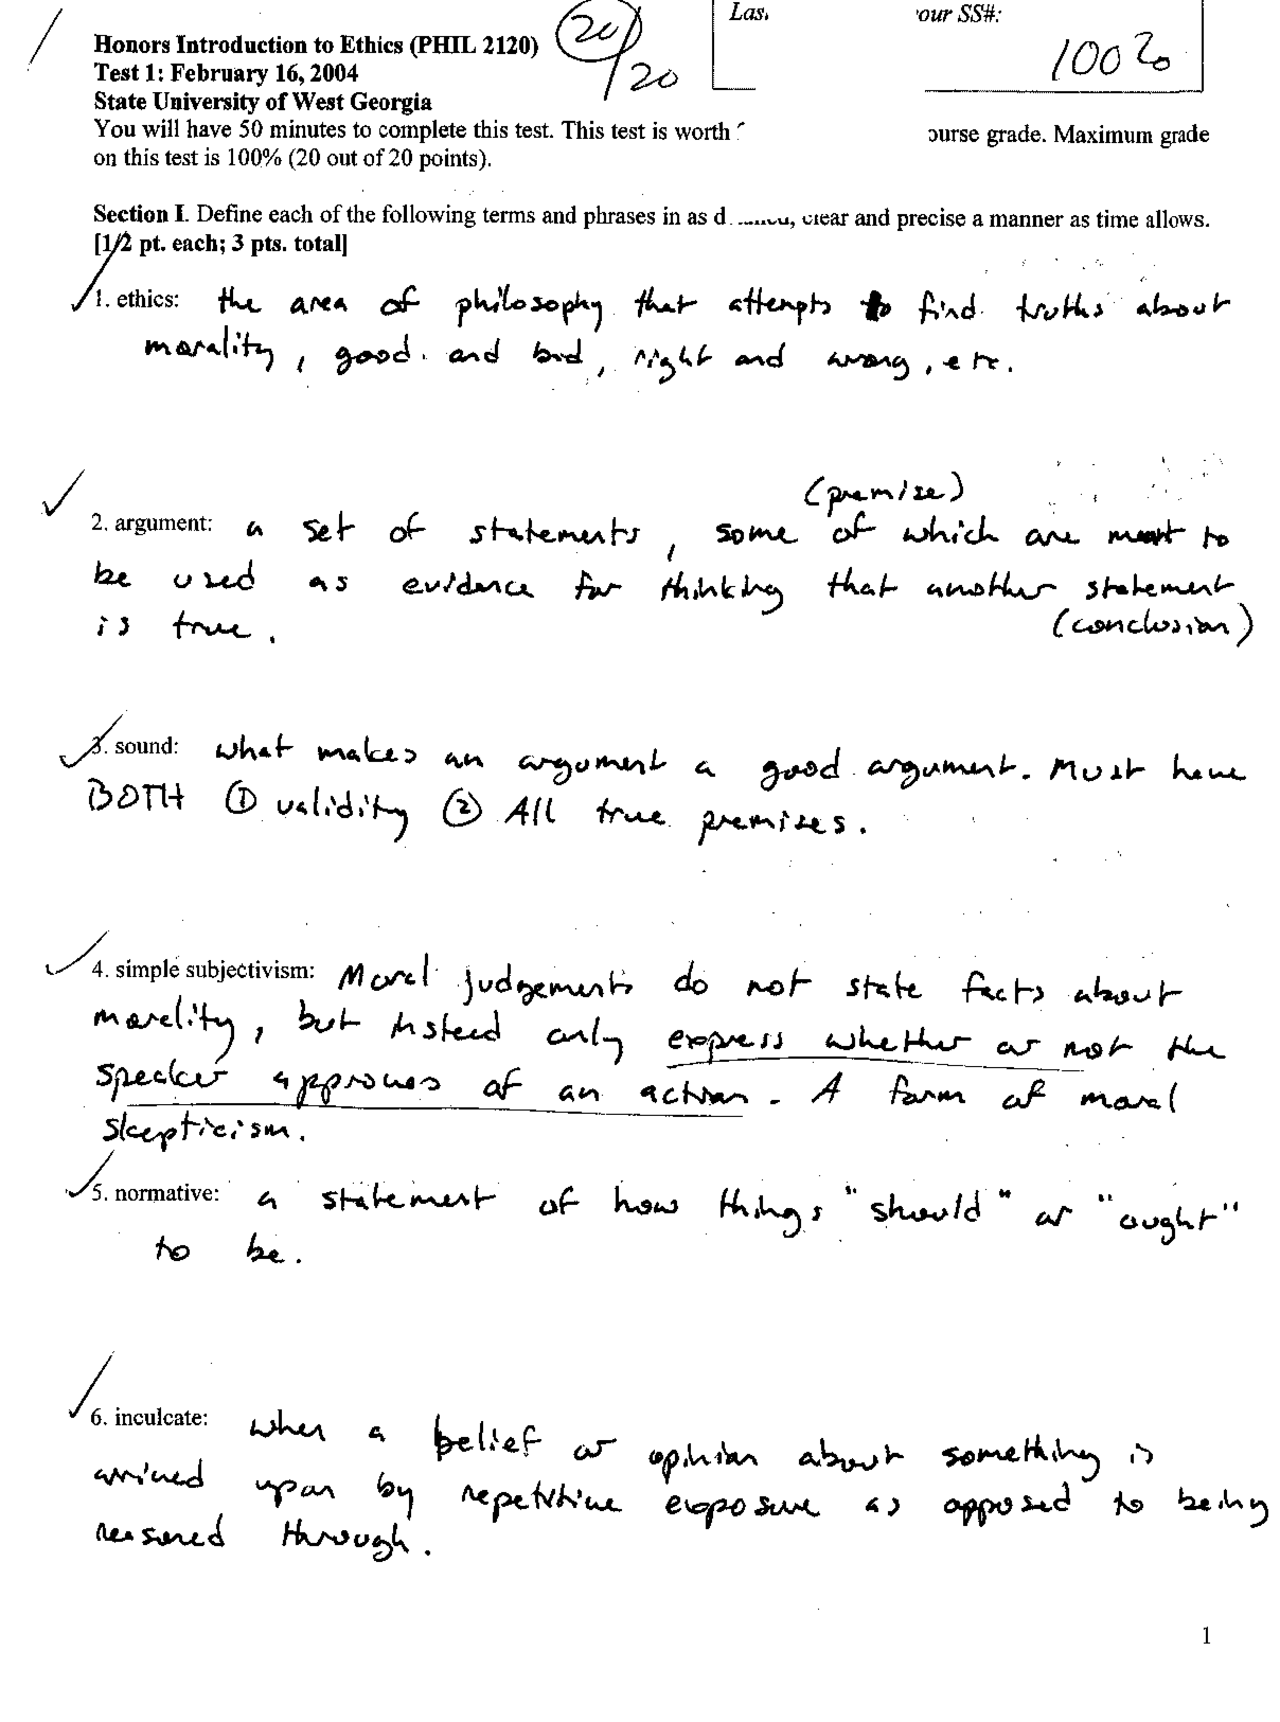 Honors Introduction to Ethics (PHIL 2120)
20/20
Las
our SS#:
100%
Test 1: February 16, 2004
State University of West Georgia
You will have 50 minutes to complete this test. This test is worth
ourse grade. Maximum grade
on this test is 100% (20 out of 20 points).
Section I. Define each of the following terms and phrases in as d clear and precise a manner as time allows.
[1/2 pt. each; 3 pts. total]
1. ethics: the area of philosophy that attempts to find truths about
morality, good and bad, right and wrong, etc.
(premise)
2. argument: a set of statements, some of which are meant to
be used as evidence for thinking that another statement
is true. (conclusion)
3. sound: what makes an argument a good argument. Must have
BOTH ① validity ② All true premises.
4. simple subjectivism: Moral judgements do not state facts about
morality, but instead only express whether or not the
speaker approves of an action. A form of moral
skepticism.
5. normative: a statement of how things "should" or "ought"
to be.
6. inculcate: when a belief or opinion about something is
arrived upon by repetitive exposure as opposed to being
reasoned through.
1